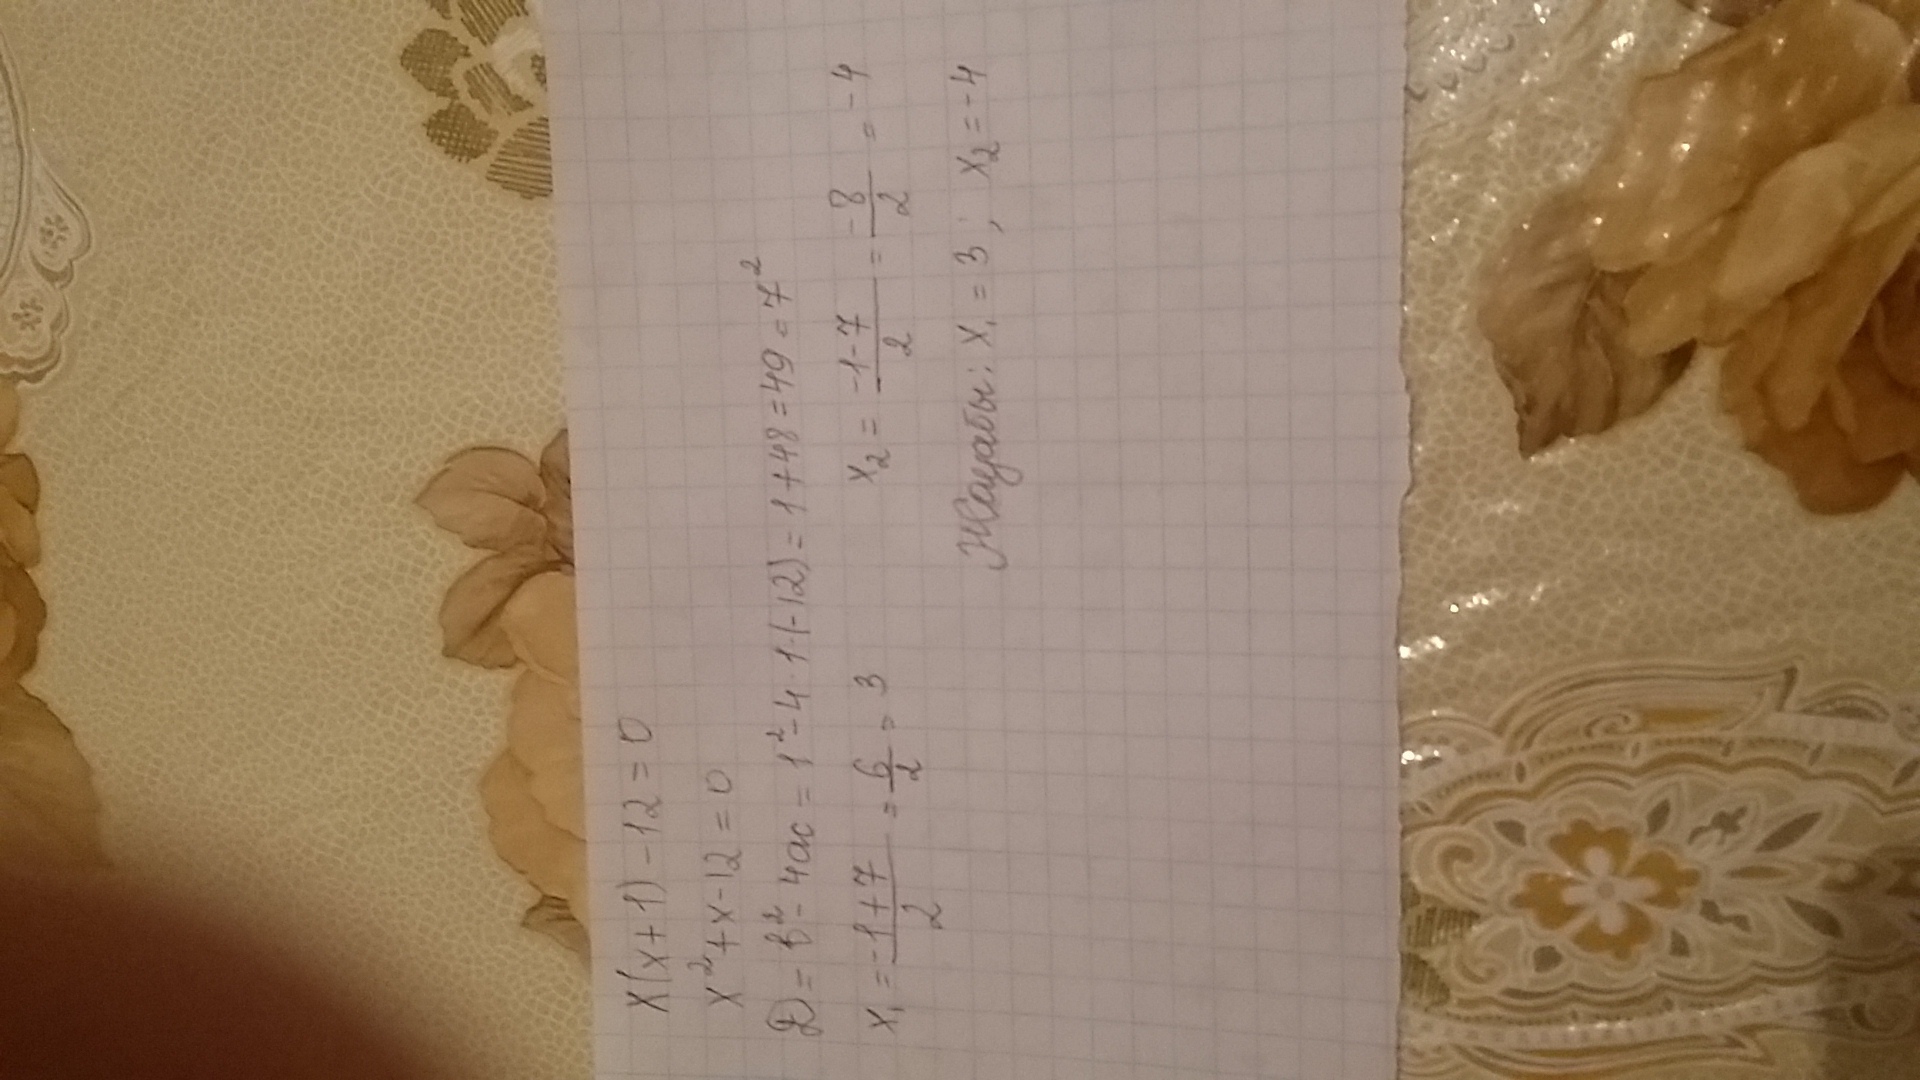 x(x+1)-12=0
x²+x-12=0
D=b²-4ac=1²-4·1·(-12)=1+48=49=7²
x₁=(-1+7)/2=6/2=3 x₂=(-1-7)/2=-8/2=-4
Жауабы: x₁=3; x₂=-4